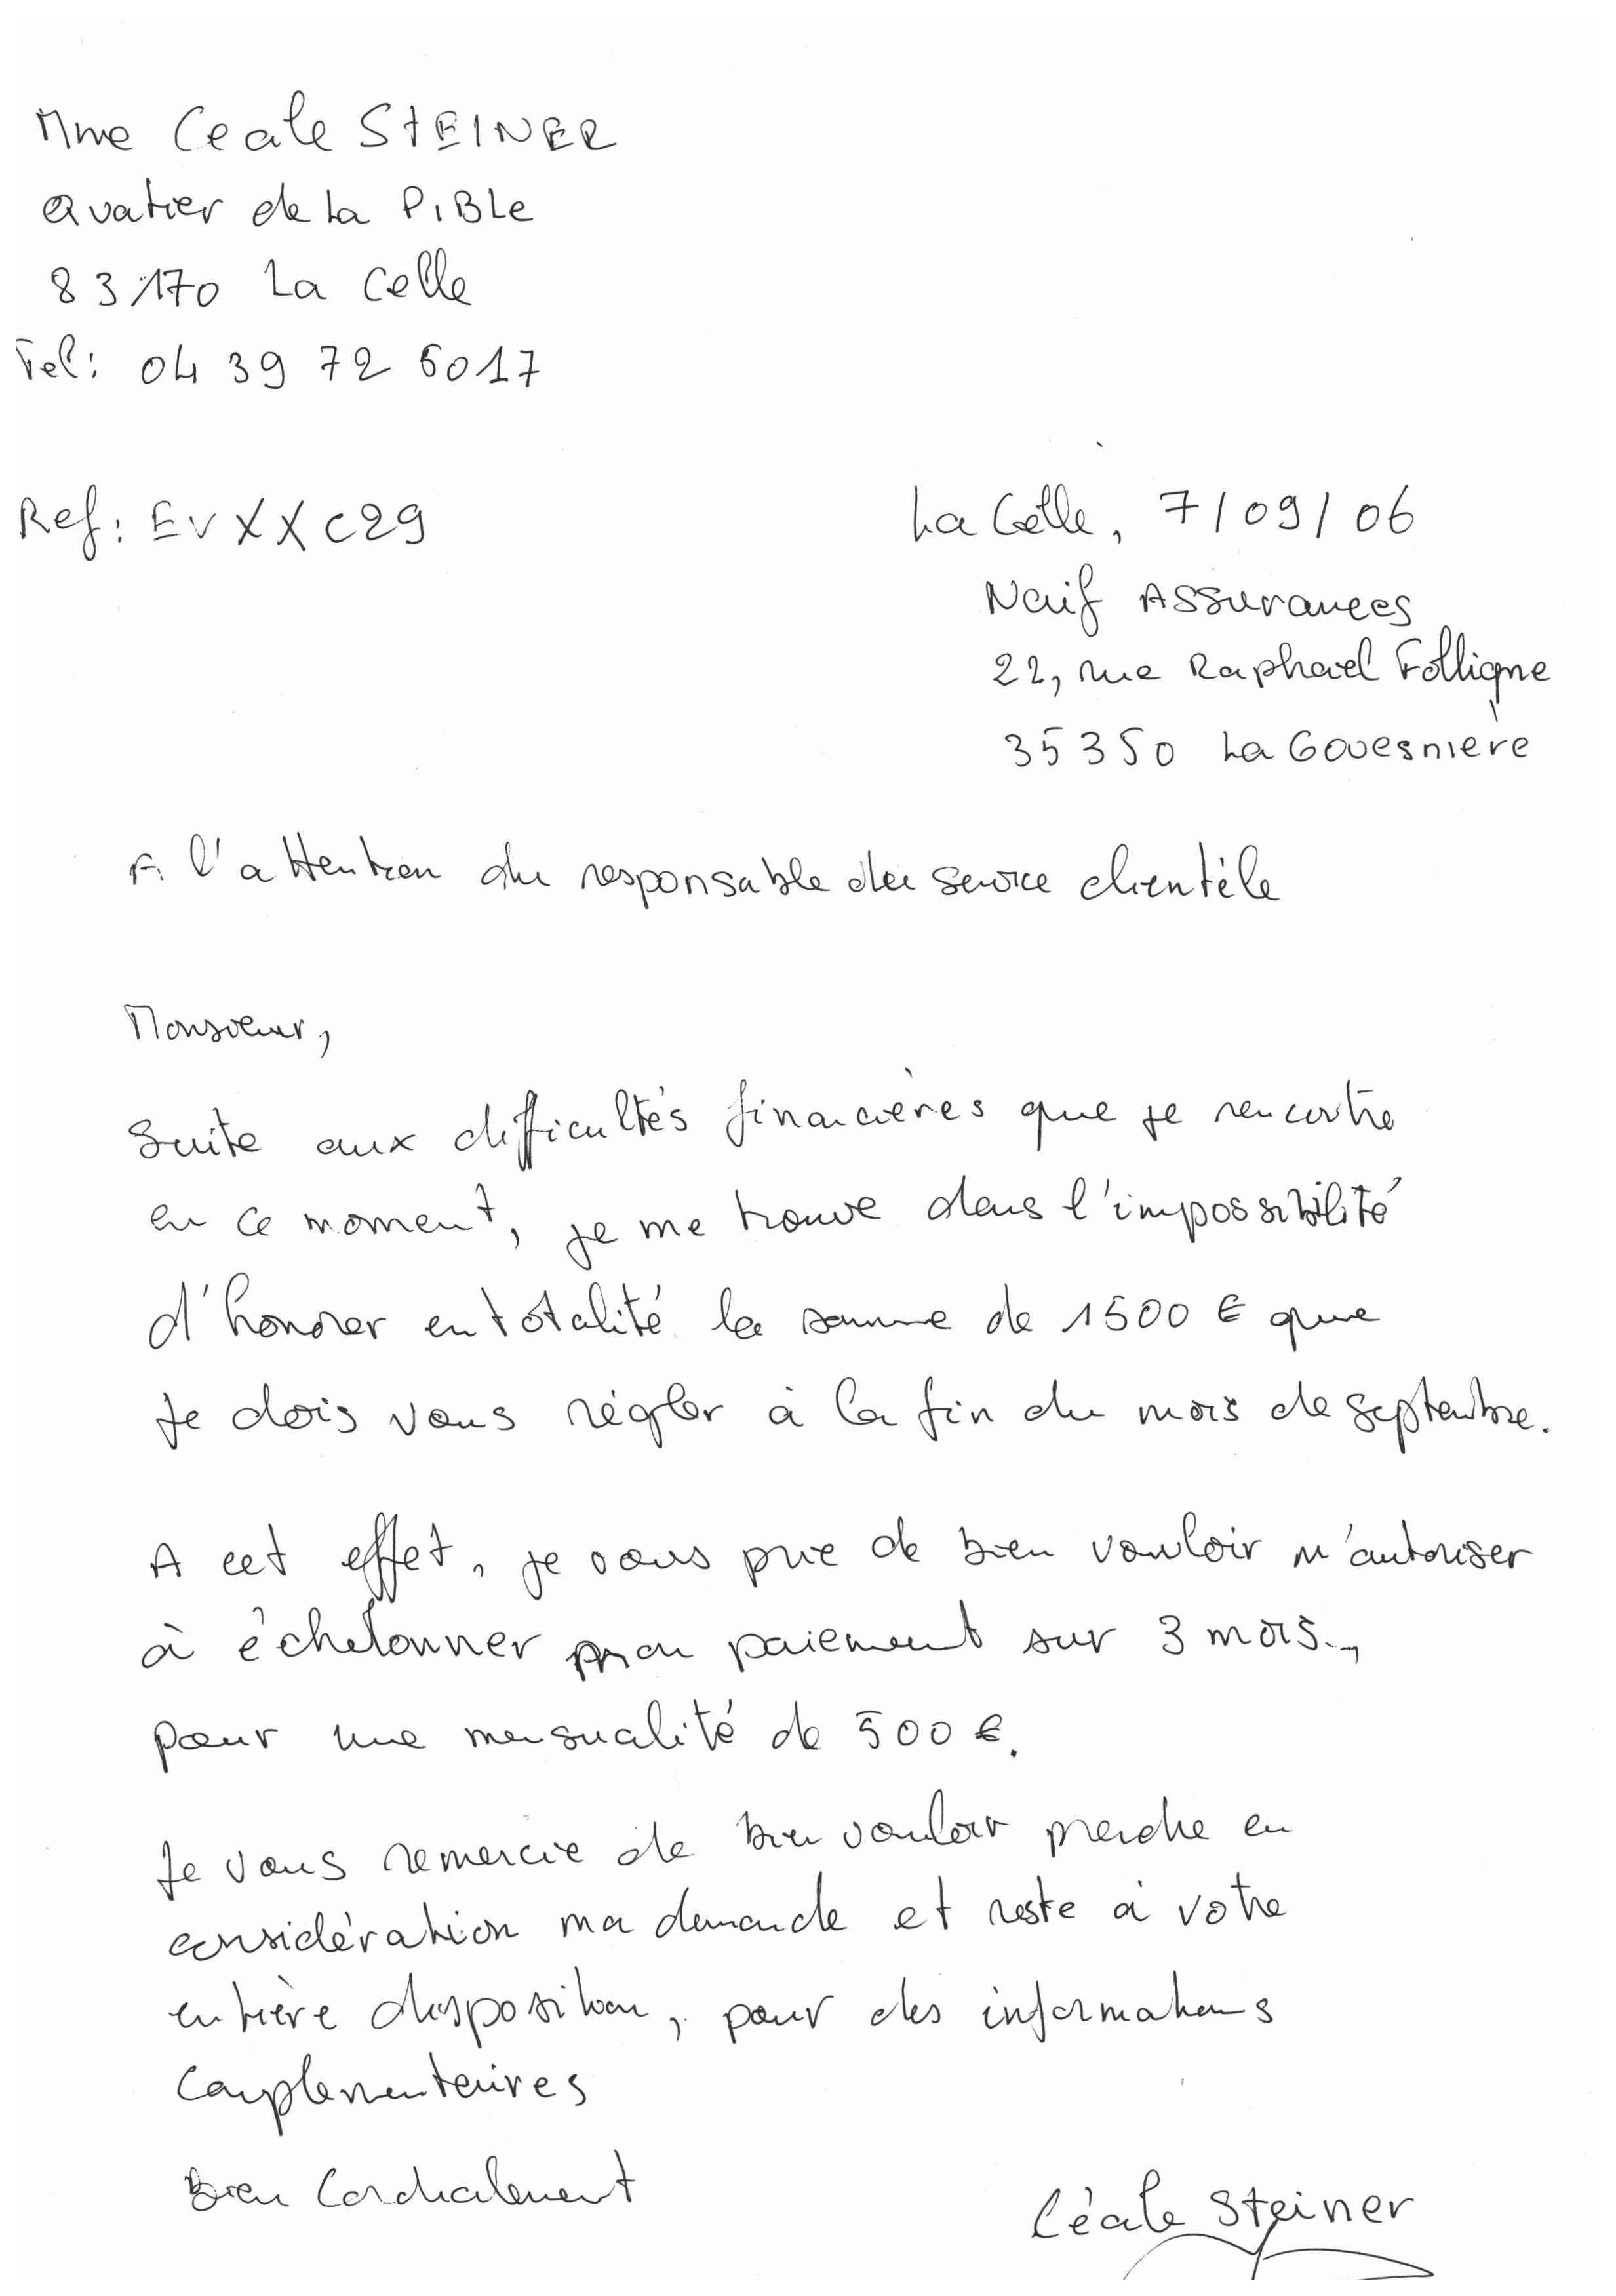 Mme Cecile STEINER
Quatier de la PiBLe
83170 La Celle
Tel: 04 39 72 60 17
Ref: EVXXC29
La Celle, 7/09/06
Naif Assurances
22, rue Raphael Folligne
35350 La Gouesniere
A l'attention du responsable du service clientèle
Monsieur,
Suite aux difficultés financières que je rencontre
en ce moment, je me trouve dans l'impossibilité
d'honorer en totalité la somme de 1500 € que
je dois vous régler à la fin du mois de septembre.
A cet effet, je vous prie de bien vouloir m'autoriser
à échelonner mon paiement sur 3 mois.,
pour une mensualité de 500 €.
Je vous remercie de bien vouloir prendre en
considération ma demande et reste à votre
entière disposition, pour des informations
complementaires
Bien Cordialement
Cécile Steiner